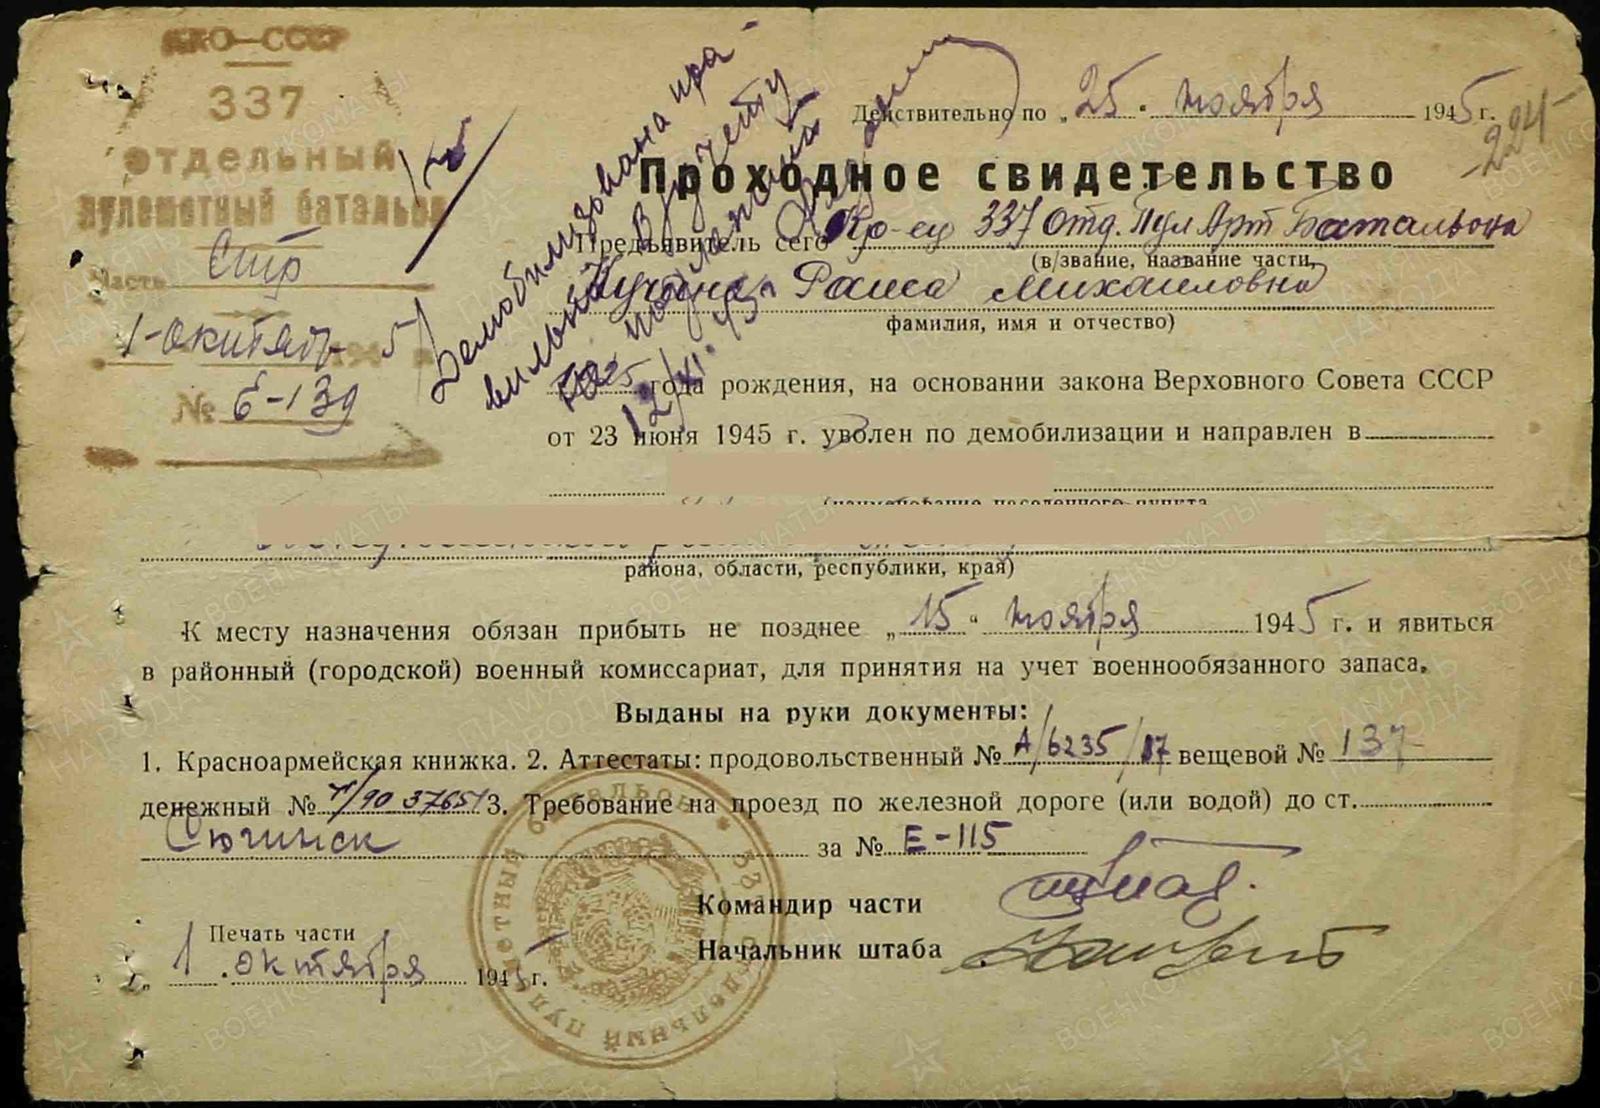 НКО—СССР
337
отдельный
пулеметный батальон
Часть Стр
1-октябрь 5
№ Е-139
Демобилизована пра-
вильно
12/XI-45
224
Действительно по „25" ноября 1945 г.
Проходное свидетельство
Предъявитель сего Кр-ец 337 Отд. Пул Арт Батальона
(в/звание, название части,
Раиса Михаиловна
фамилия, имя и отчество)
1925 года рождения, на основании закона Верховного Совета СССР
от 23 июня 1945 г. уволен по демобилизации и направлен в
(наименование населенного пункта
района, области, республики, края)
К месту назначения обязан прибыть не позднее „15" ноября 1945 г. и явиться
в районный (городской) военный комиссариат, для принятия на учет военнообязанного запаса.
Выданы на руки документы:
1. Красноармейская книжка. 2. Аттестаты: продовольственный № А/6235/17 вещевой № 137
денежный № 3. Требование на проезд по железной дороге (или водой) до ст.
Сюгинск за № Е-115
Командир части
Начальник штаба
Печать части
„1" октября 1945 г.
337 отдельный пулеметный батальон